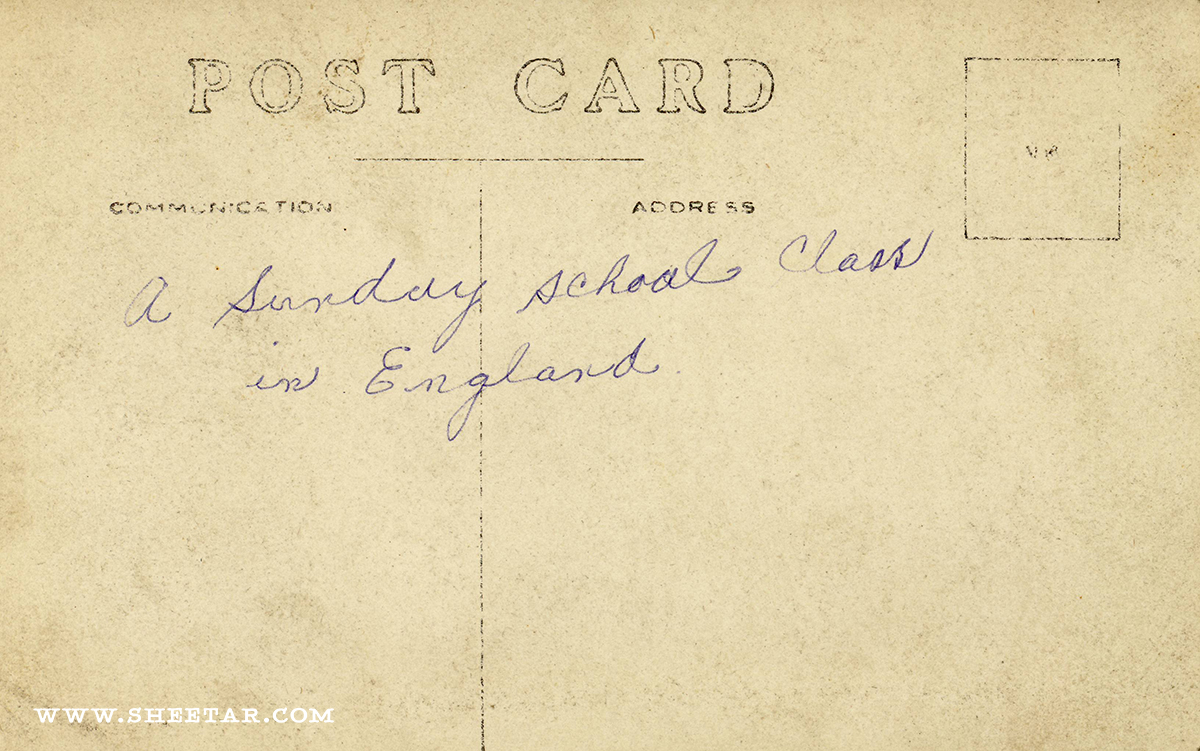 POST CARD
COMMUNICATION
ADDRESS
A Sunday school Class
in England.
WWW.SHEETAR.COM